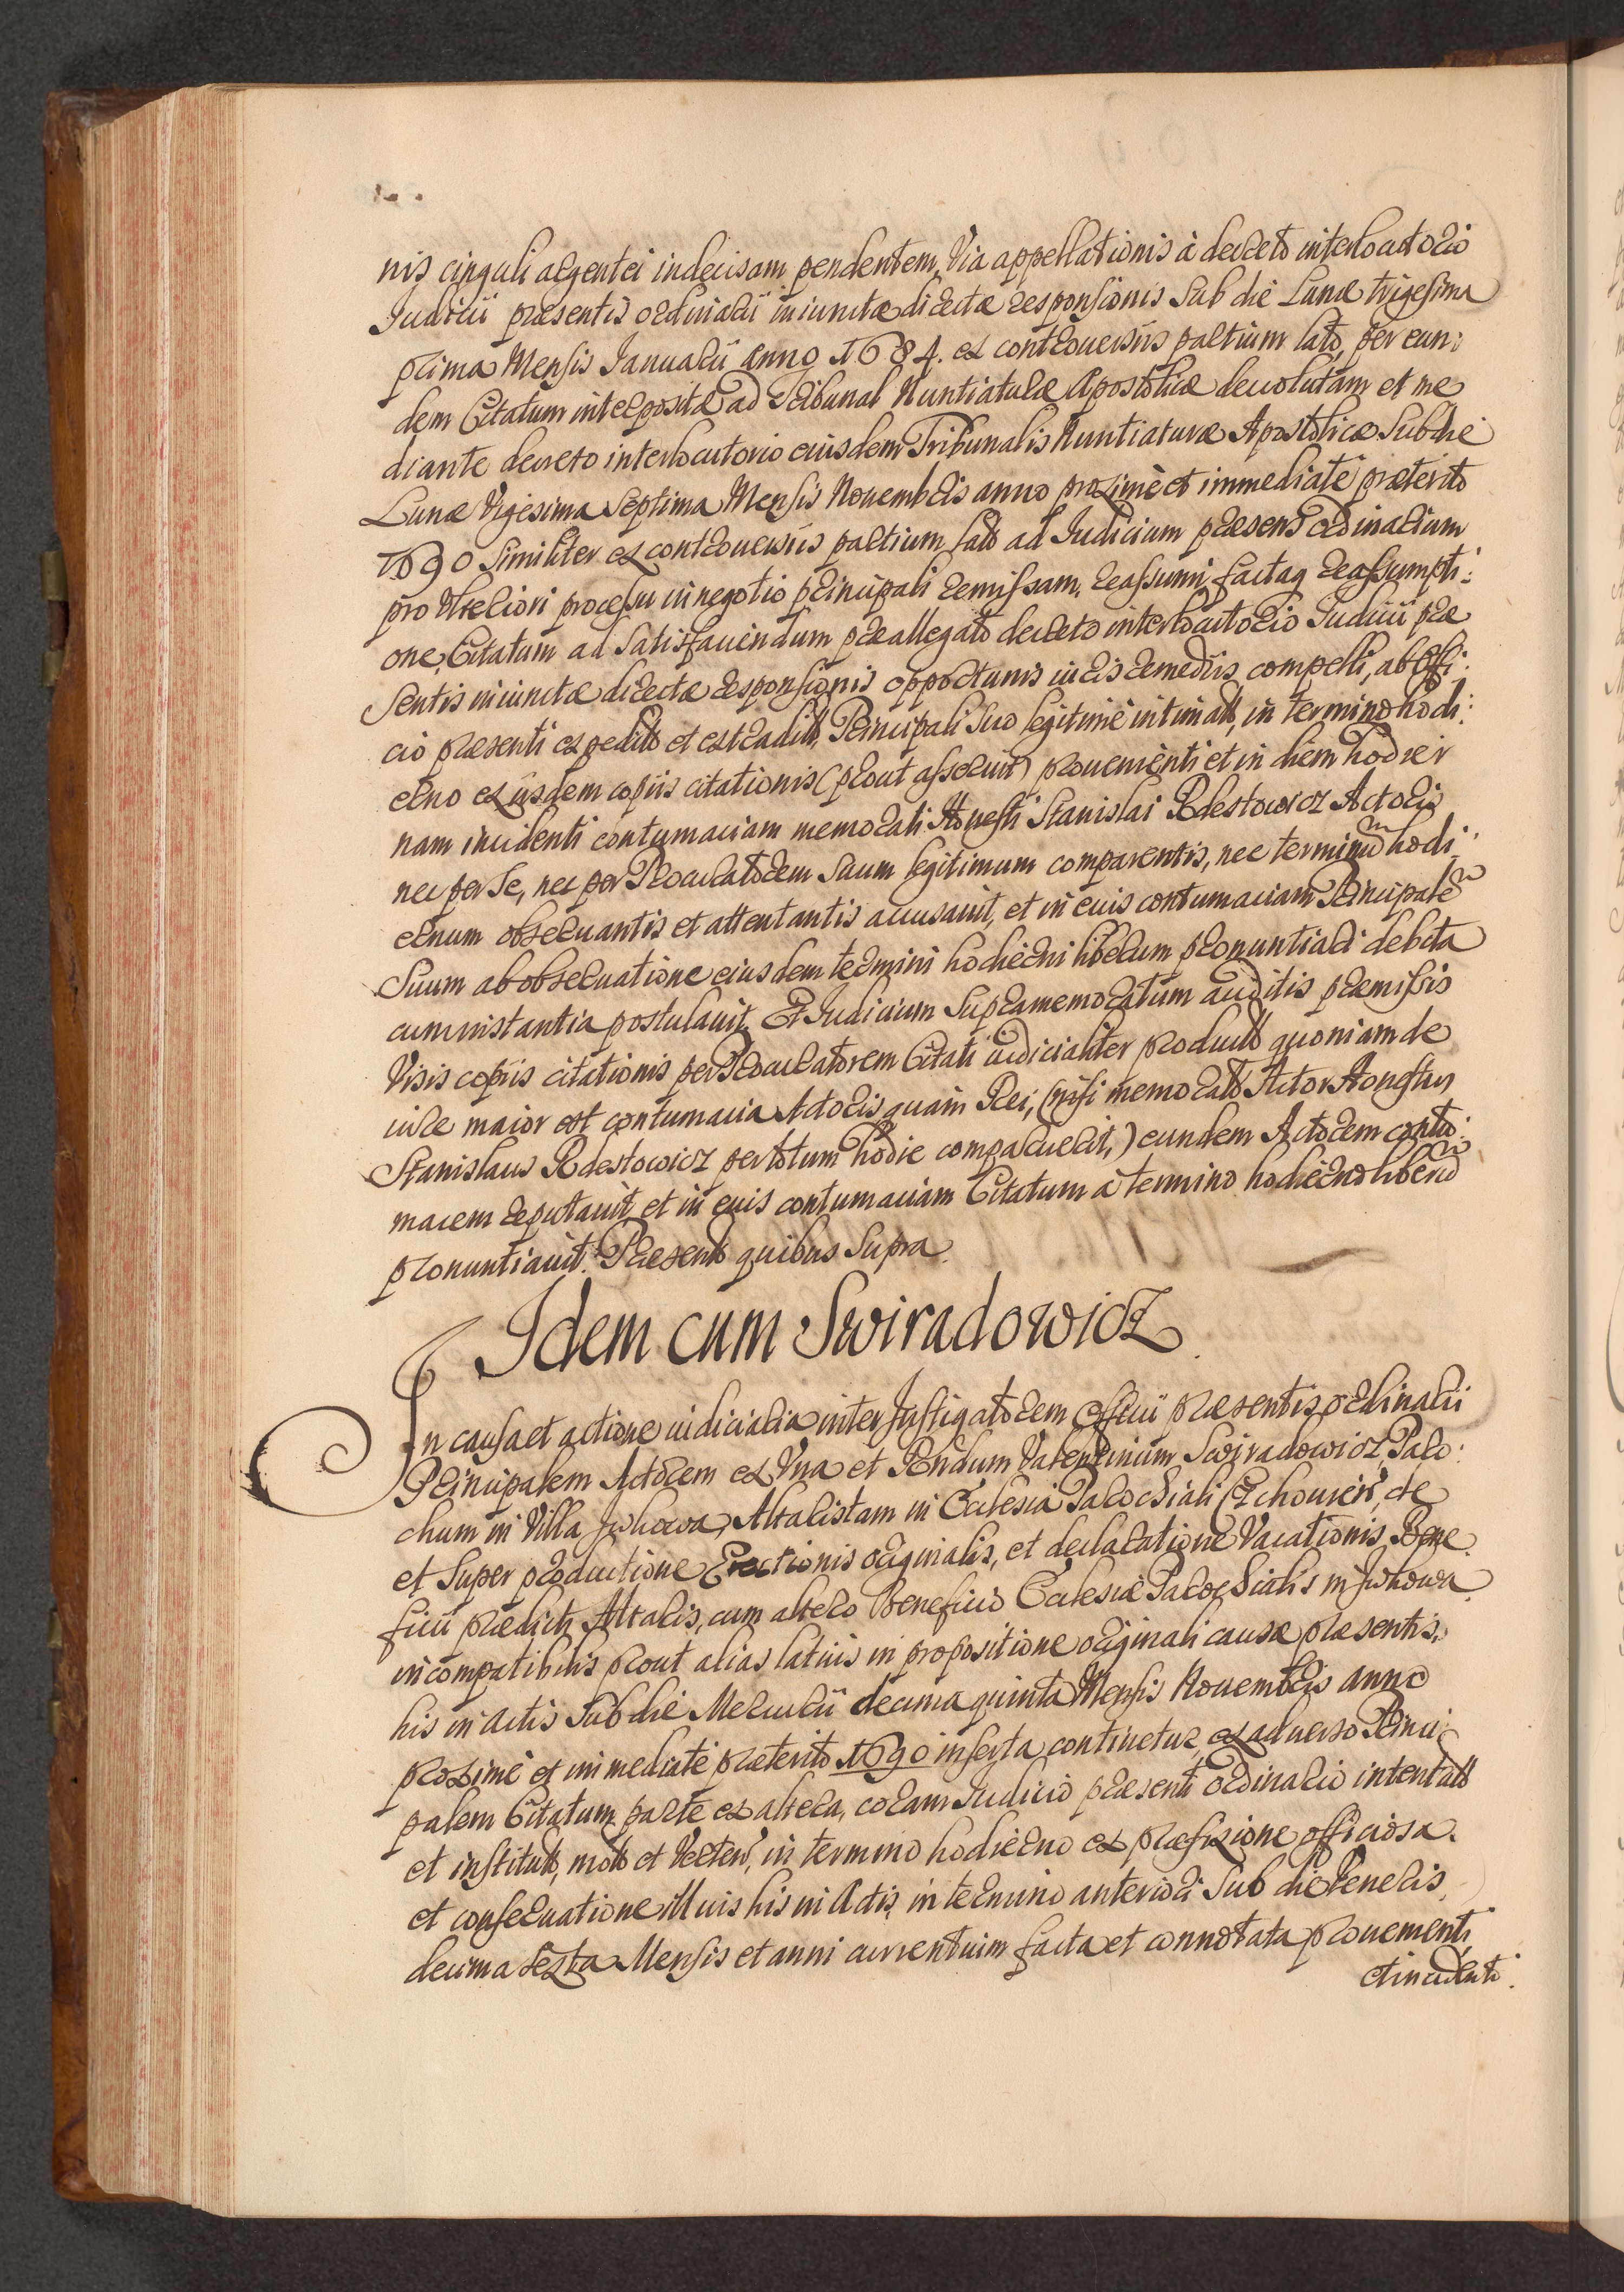 nis cinguli argentei indecisam pendentem, Via appellationis à decreto interlocutorio
Judicii præsentis ordinarii iniunctæ directæ responsionis Sub die Lunæ trigesima
prima Mensis Januarii Anno 1684. ex controuersiis partium lato, per eun:
dem Citatum interposita ad Tribunal Nuntiaturæ Apostolicæ deuolutam et me
diante decreto interlocutorio eiusdem Tribunalis Nuntiaturæ Apostolicæ Sub die
Lunæ Vigesima Septima Mensis Nouembris anno proximè et immediatè præterito
1690 Similiter ex controuersiis partium lato ad Judicium præsens ordinarium
pro Vlteriori processu in negotio principali remissam, reassumi, factaq reassumpti:
one, Citatum ad Satisfaciendum præallegato decreto interlocutorio Judicii præ
Sentis iniunctæ directæ responsionis opportunis iuris remediis compelli, ab Offi:
cio præsenti expedito et extradito, Principali Suo legitimè intimato, in termino hodi:
erno ex iisdem copiis citationis (prout asseruit) proueniēnti et in diem hodier
nam incidenti contumaciam memorati Honesti Stanislai Rdestowicz Actoris
nec per Se, nec per Procuratorem Suum legitimum comparentis, nec terminū hodi:
ernum obseruantis et attentantis accusauit, et in euis contumaciam Principalē
Suum ab obseruatione eiusdem termini hodierni liberum pronuntiari debita
cum instantia postulauit. Et Judicium Supramemoratum auditis præmissis
Visis copiis citationis per Procuratorem Citati iudicialiter producto quoniam de
iure maior est contumacia Actoris quàm Rei, (nisi memorato Actor Honestus
Stanislaus Rdestowicz per totum hodie comparuerit,) eundem Actorem contu:
macem reputauit, et in euis contumaciam Citatum à termino hodierno liberū
pronuntiauit. Præsento quibus Supra.
Idem cum Swiradowicz
In causa et actione iudiciaria inter Instigatorem Officii præsentis ordinarii
Principalem Actorem ex Vna et Rndum Valentinum Swiradowicz, Paro:
chum in Villa Juhowa, Altaristam in Ecclesia Parochiali Czchouien, de
et Super productione Erectionis originalis, et declaratione Vacationis Bene
ficii prædicti Altaris, cum altero Beneficio Ecclesiæ Parochialis in Juhowa
incompatibilis prout alias latiùs in propositione originali causæ præsentis,
his in Actis Sub die Mercurii decima quinta Mensis Nouembris anno
proximè et immediatè præterito 1690 inserta continetur, ex aduerso Princi
palem Citatum parte ex altera, coram Judicio præsenti ordinario intentato
et instituto, moto et Verten, in termino hodierno ex præfixione officiosa
et conseruatione Illius his in Actis, in termino anteriori Sub die Veneris
decima sexta Mensis et anni currentium facta et connotata prouenienti
et incidenti.